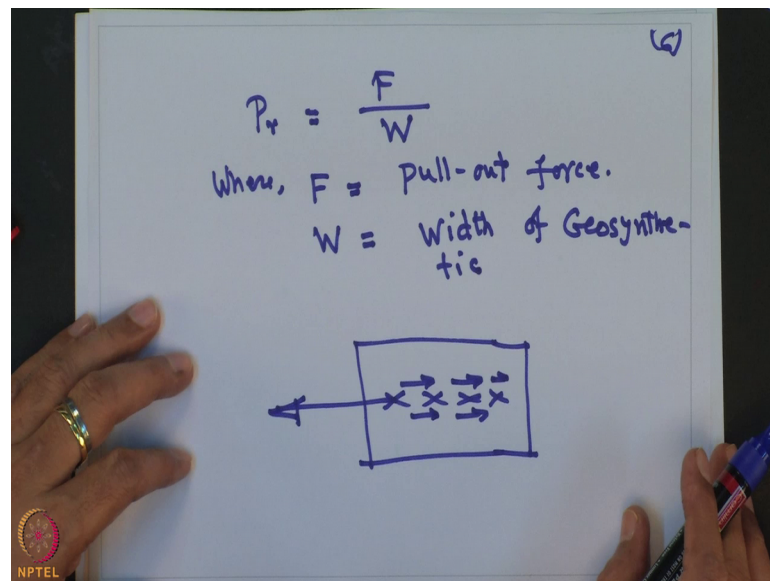 (6)
Pr = F / W
Where, F = Pull-out force.
W = Width of Geosynthe-
tic
NPTEL